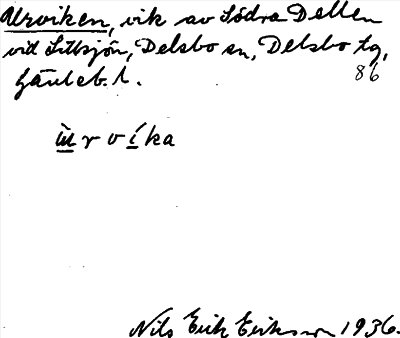 Urviken, vik av Södra Dellen
vid Sitsjön, Delsbo sn, Delsbo tg,
Gävleb. l. 86
ùrvíka
Nils Erik Eriksson 1936.